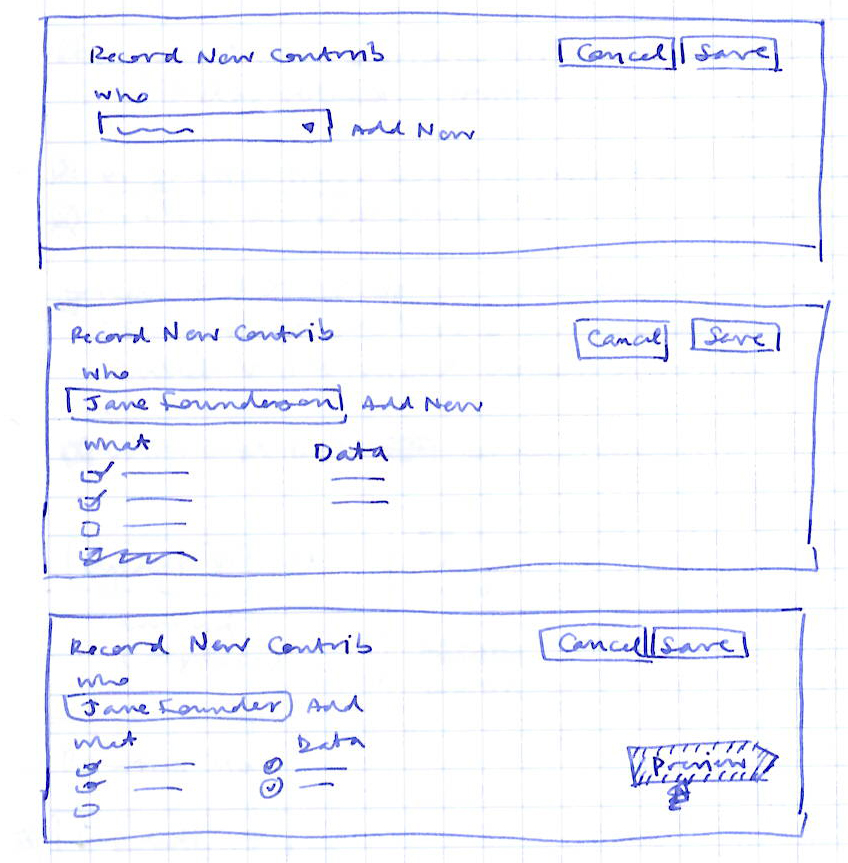 Record New Contrib Cancel Save
Who
Add New
Record New Contrib Cancel Save
Who
Jane Founderson Add New
What Data
Record New Contrib Cancel Save
Who
Jane Founder Add
What Data
Preview